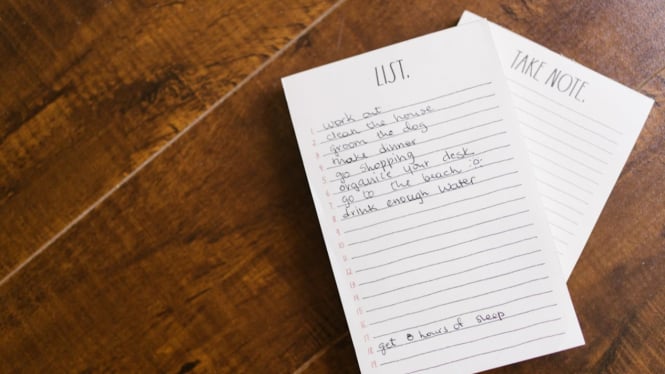 LIST.
1. work out
2. clean the house
3. groom the dog
4. make dinner
5. go shopping
6. organise your desk
7. go to the beach :o
8. drink enough water
9.
10.
11.
12.
13.
14.
15.
16.
17.
18. get 8 hours of sleep
19.
TAKE NOTE.